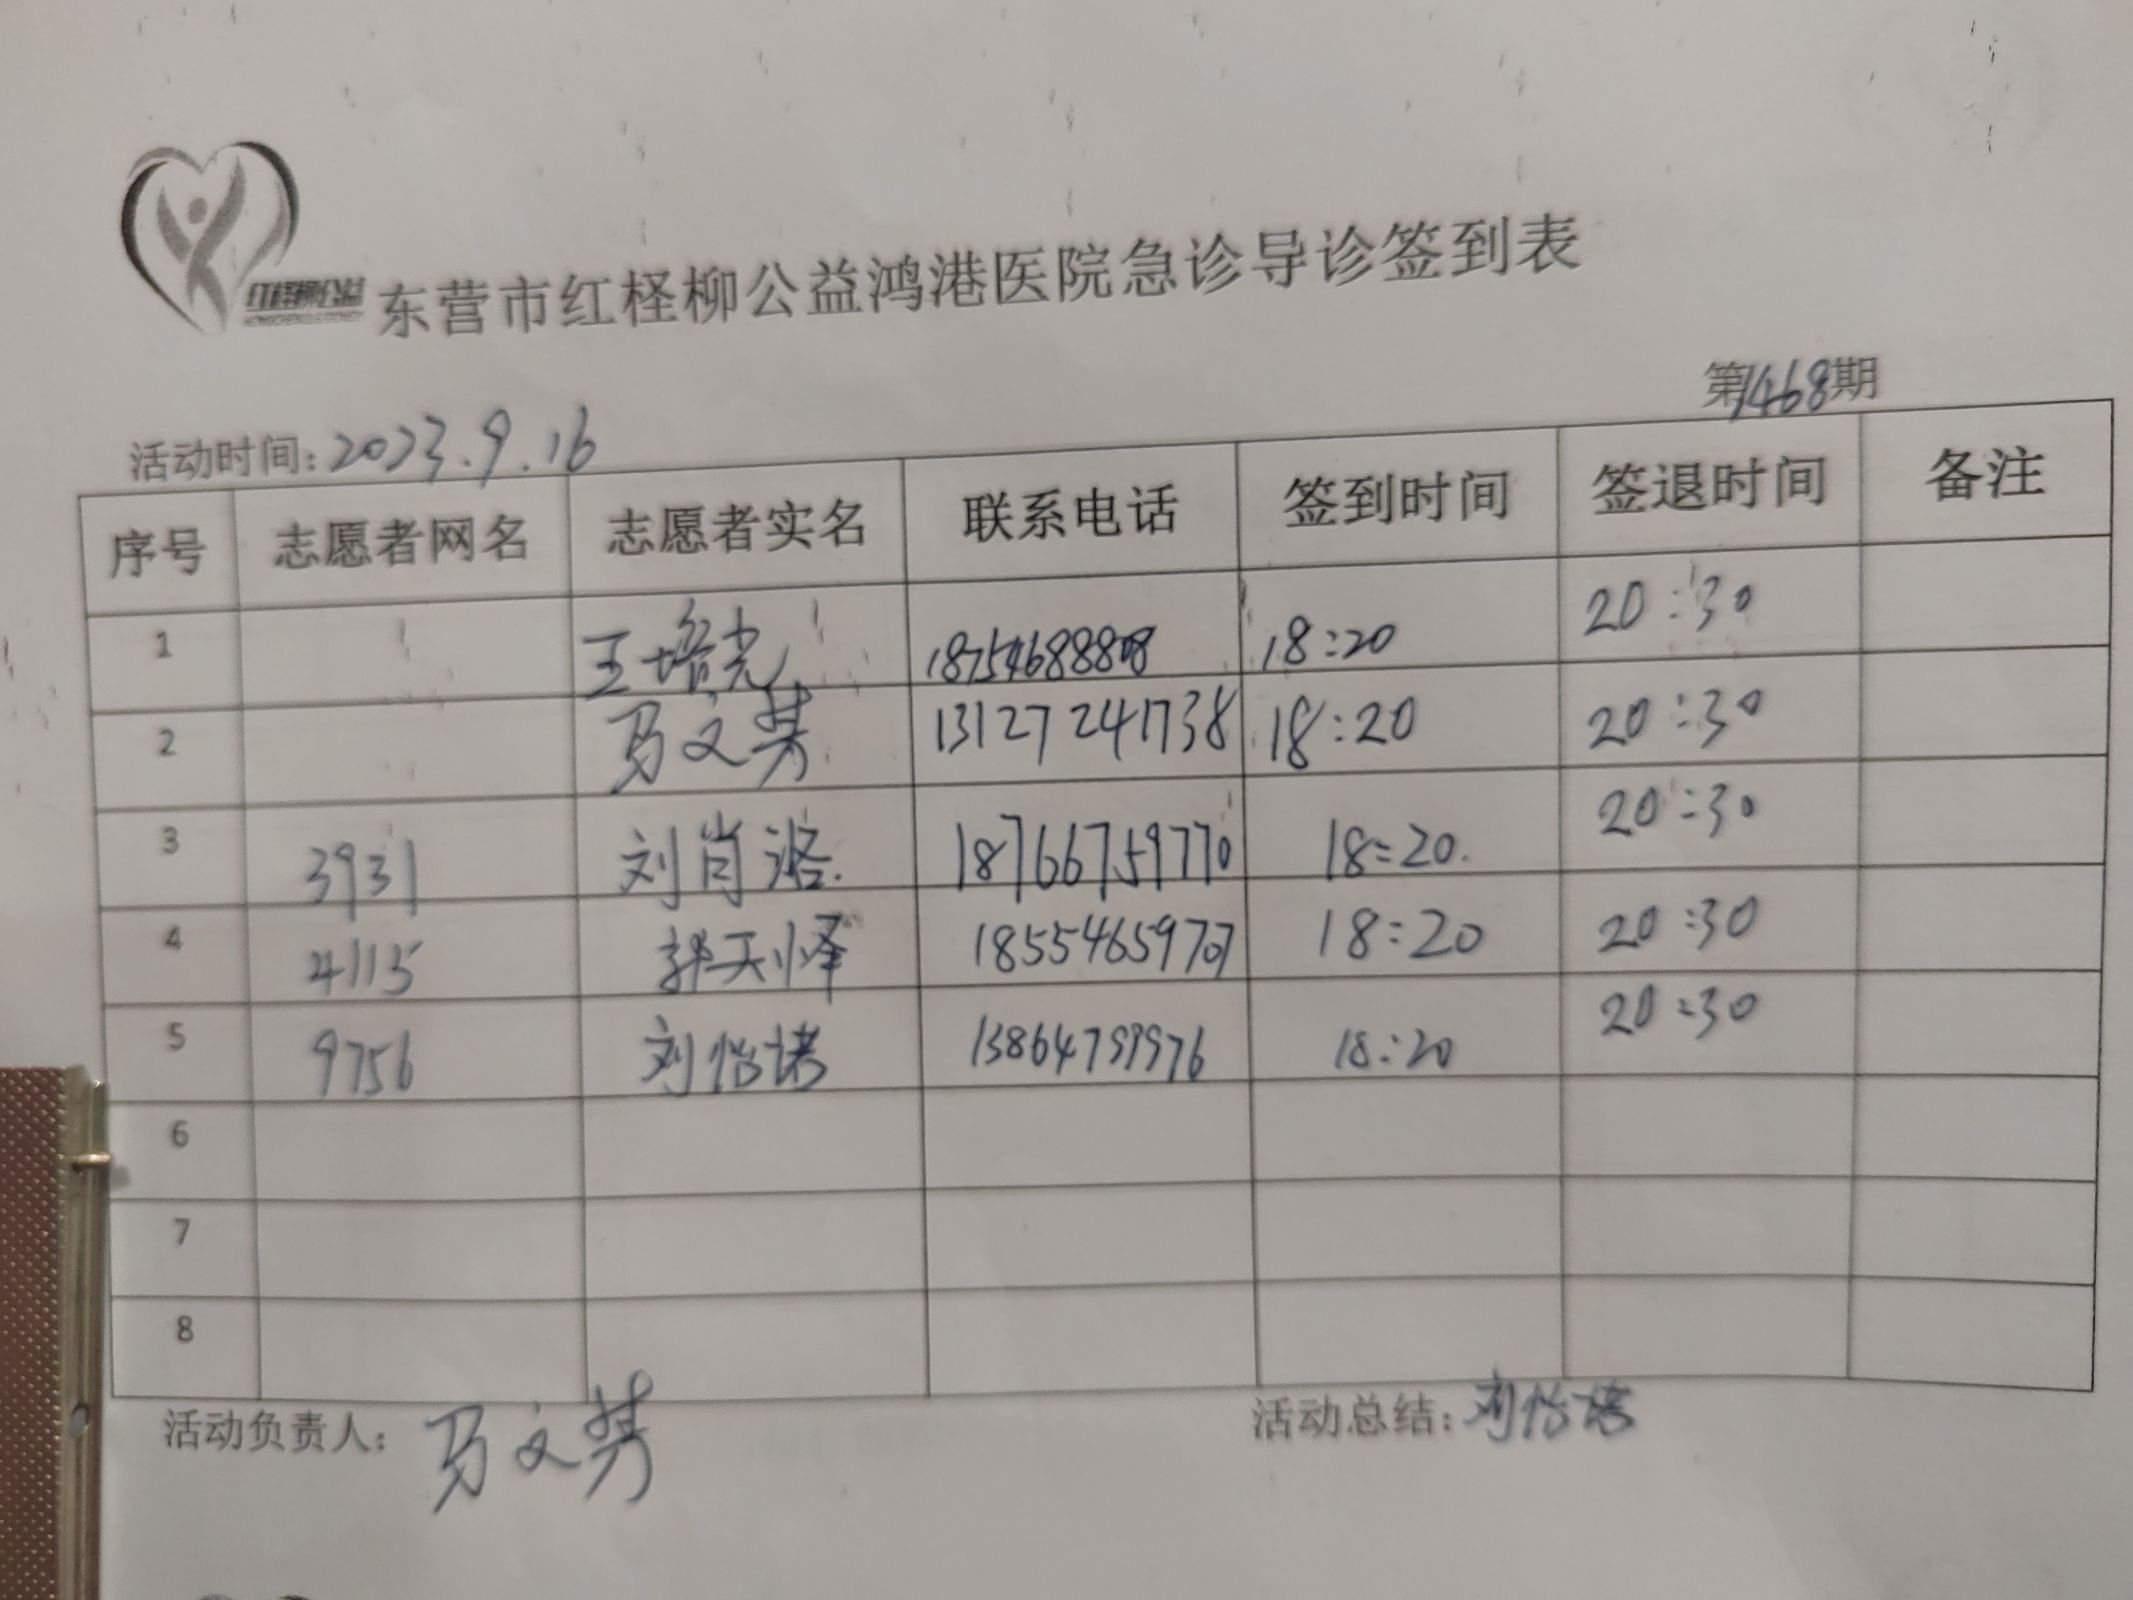 东营市红柽柳公益鸿港医院急诊导诊签到表
第1468期
活动时间:2023.9.16
序号 志愿者网名 志愿者实名 联系电话 签到时间 签退时间 备注
1 王培光 18:20 20:30
2 马文 13127241738 18:20 20:30
3 3931 刘肖 18766759770 18:20. 20:30
4 4115 郭天怿 18554659707 18:20 20:30
5 9756 刘怡诺 18:20 20:30
6
7
8
活动负责人: 马文
活动总结: 刘怡诺